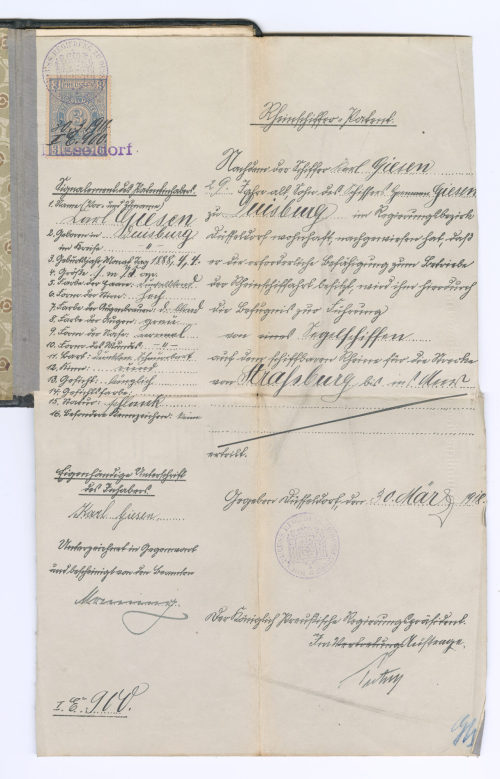 3 3
Düsseldorf
Rheinschiffer-Patent.
Nachdem der Schiffer Karl Giesen
29 Jahre alt Sohn des Schiffers Hermann Giesen
zu Duisburg in Regierungsbezirk
Düsseldorf wohnhaft, nachgewiesen hat, daß
er die erforderliche Befähigung zum Betriebe
der Rheinschiffahrt besitzt, wird ihm hierdurch
die Befugnis zur Führung
von einem Segelschiffen
auf dem schiffbaren Rheine für die Strecke
von Straßburg bis in's Meer
erteilt.
Gegeben Düsseldorf, den 30 März 1918.
Der Königlich Preußische Regierungspräsident.
Im Auftrage.
Signalement des Patentinhabers.
1. Name (Vor- und Zuname)
Karl Giesen
2. Geboren in Duisburg
im Kreise - " -
3. Geburtsjahr Monat Tag 1888,
4. Größe: 1 m
5. Farbe der Haare:
6. Form der Stirn: hoch
7. Farbe der Augenbrauen: d. blond
8. Farbe der Augen: grau
9. Form der Nase: normal
10. Form des Mundes - " -
11. Bart: dunklen Schnurrbart
12. Kinn: rund
13. Gesicht: länglich
14. Gesichtsfarbe:
15. Statur: schlank
16. Besondere Kennzeichen: keine
Eigenhändige Unterschrift
des Inhabers
Karl Giesen
Unterzeichnet in Gegenwart
und bescheinigt von dem Beamten
I. E. 900.